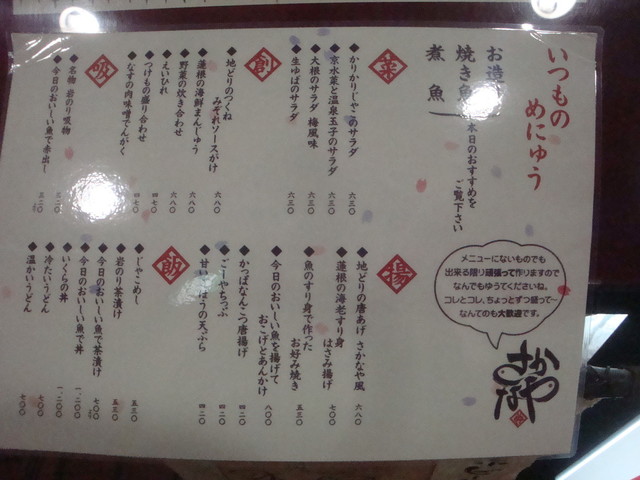 いつもの
めにゅう
お造
焼き魚
煮魚
本日のおすすめを
ご覧下さい
菜
◆かりかりじゃこのサラダ 六三〇
◆京水菜と温泉玉子のサラダ 六三〇
◆大根のサラダ 梅風味 六三〇
◆生ゆばのサラダ 六三〇
創
◆地どりのつくね
みぞれソースがけ 六八〇
◆蓮根の海鮮まんじゅう 六八〇
◆野菜の炊き合わせ 六八〇
◆えいひれ
◆つけもの盛り合わせ 四七〇
◆なすの肉味噌でんがく 四七〇
吸
◆名物 岩のり吸物
◆今日のおいしい魚で赤出し 三二〇
揚
◆地どりの唐あげ さかなや風 六八〇
◆蓮根の海老すり身
はさみ揚げ 七八〇
◆魚のすり身で作った
お好み焼き 五三〇
◆今日のおいしい魚を揚げて
おこげとあんかけ 八〇〇
◆かっぱなんこつ唐揚げ 四二〇
◆ごーやちっぷ 四二〇
◆甘い ぼうの天ぷら 四二〇
飯
◆じゃこめし 五三〇
◆岩のり茶漬け 五三〇
◆今日のおいしい魚で茶漬け 七〇〇
◆今日のおいしい魚で丼 一、二〇〇
◆いくらの丼 一、二〇〇
◆冷たいうどん 七〇〇
◆温かいうどん 七〇〇
メニューにないものでも
出来る限り頑張って作りますので
なんでもゆうてくださいね。
コレとコレ、ちょっとずつ盛って―
なんてのも大歓迎です。
さかなや